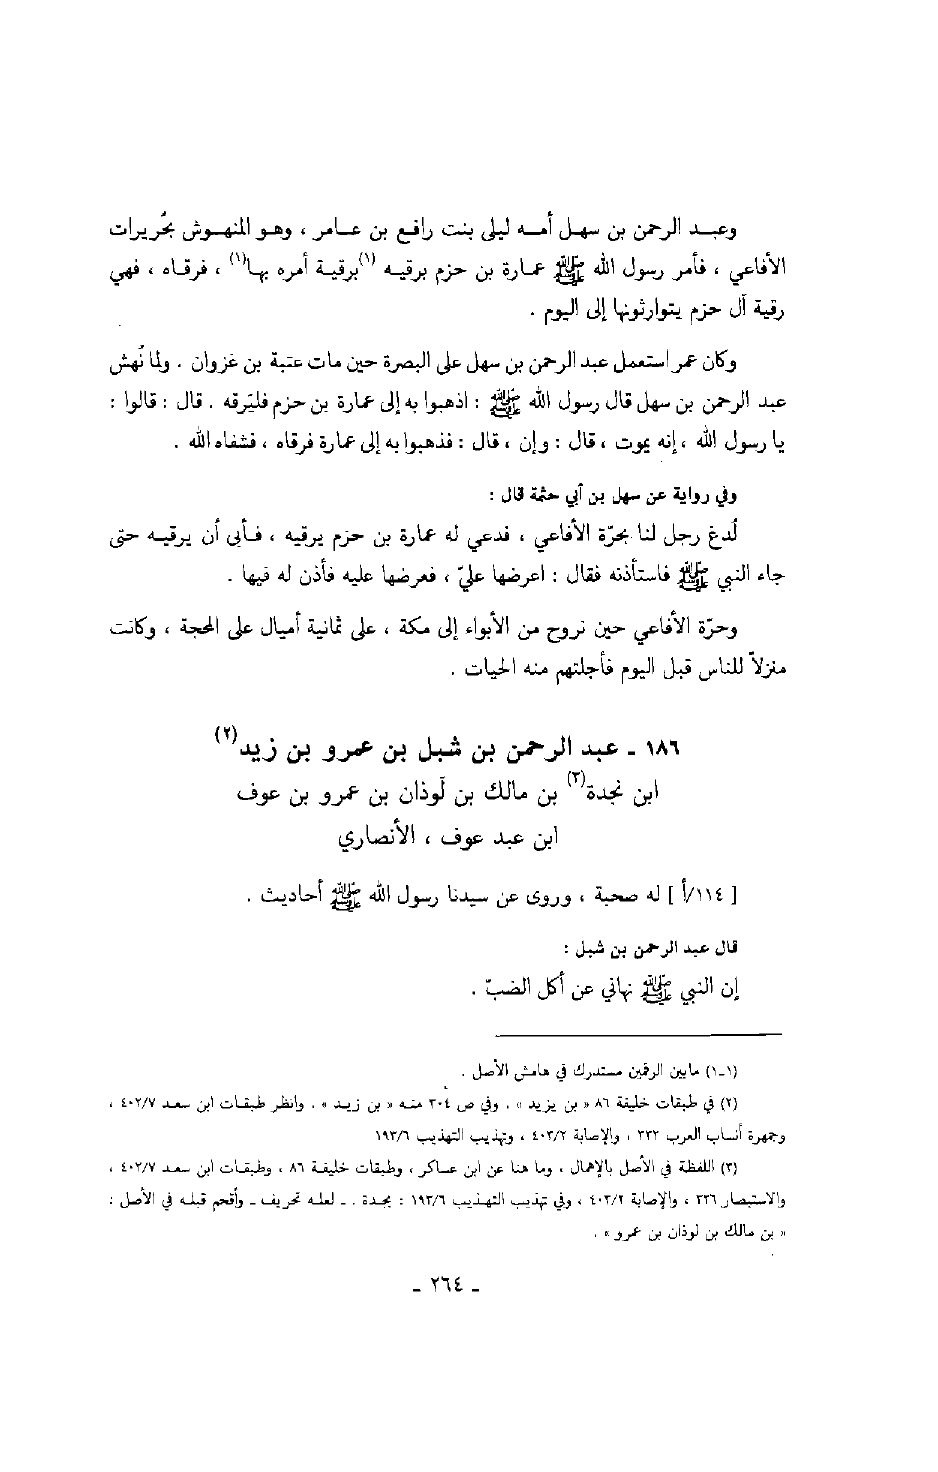 وعبد الرحمن بن سهل أمه ليلى بنت رافع بن عامر ، وهو المنهوش بحُريرات
الأفاعي ، فأمر رسول الله ﷺ عمارة بن حزم برقيه (١)برقية أمره بها(١) ، فرقاه ، فهي
رقية آل حزم يتوارثونها إلى اليوم .
وكان عمر استعمل عبد الرحمن بن سهل على البصرة حين مات عتبة بن غزوان . ولما نُهش
عبد الرحمن بن سهل قال رسول الله ﷺ : اذهبوا به إلى عمارة بن حزم فليَرقه . قال : قالوا :
يا رسول الله ، إنه يموت ، قال : وإن ، قال : فذهبوا به إلى عمارة فرقاه ، فشفاه الله .
وفي رواية عن سهل بن أبي حثمة قال :
لُدغ رجل لنا بحرّة الأفاعي ، فدعي له عمارة بن حزم يرقيه ، فأبى أن يرقيه حتى
جاء النبي ﷺ فاستأذنه فقال : اعرضها عليّ ، فعرضها عليه فأذن له فيها .
وحرّة الأفاعي حين نروح من الأبواء إلى مكة ، على ثمانية أميال على المحجة ، وكانت
منزلاً للناس قبل اليوم فأجلتهم منه الحيات .
١٨٦ ـ عبد الرحمن بن شبل بن عمرو بن زيد(٢)
ابن نجدة(٣) بن مالك بن لَوذان بن عمرو بن عوف
ابن عبد عوف ، الأنصاري
[ ١١٤/أ ] له صحبة ، وروى عن سيدنا رسول الله ﷺ أحاديث .
قال عبد الرحمن بن شبل :
إن النبي ﷺ نهاني عن أكل الضبّ .
(١-١) مابين الرقمين مستدرك في هامش الأصل .
(٢) في طبقات خليفة ٨٦ « بن يزيد » . وفي ص ٣٠٤ منه « بن زيد » . وانظر طبقات ابن سعد ٤٠٢/٧ ،
وجمهرة أنساب العرب ٣٣٢ ، والإصابة ٤٠٣/٢ ، وتهذيب التهذيب ١٩٣/٦
(٣) اللفظة في الأصل بالإهمال ، وما هنا عن ابن عساكر ، وطبقات خليفة ٨٦ ، وطبقات ابن سعد ٤٠٢/٧ ،
والاستبصار ٣٣٦ ، والإصابة ٤٠٣/٢ ، وفي تهذيب التهذيب ١٩٣/٦ : بجدة . ـ لعله تحريف ـ وأقحم قبله في الأصل :
« بن مالك بن لوذان بن عمرو » .
ـ ٢٦٤ ـ